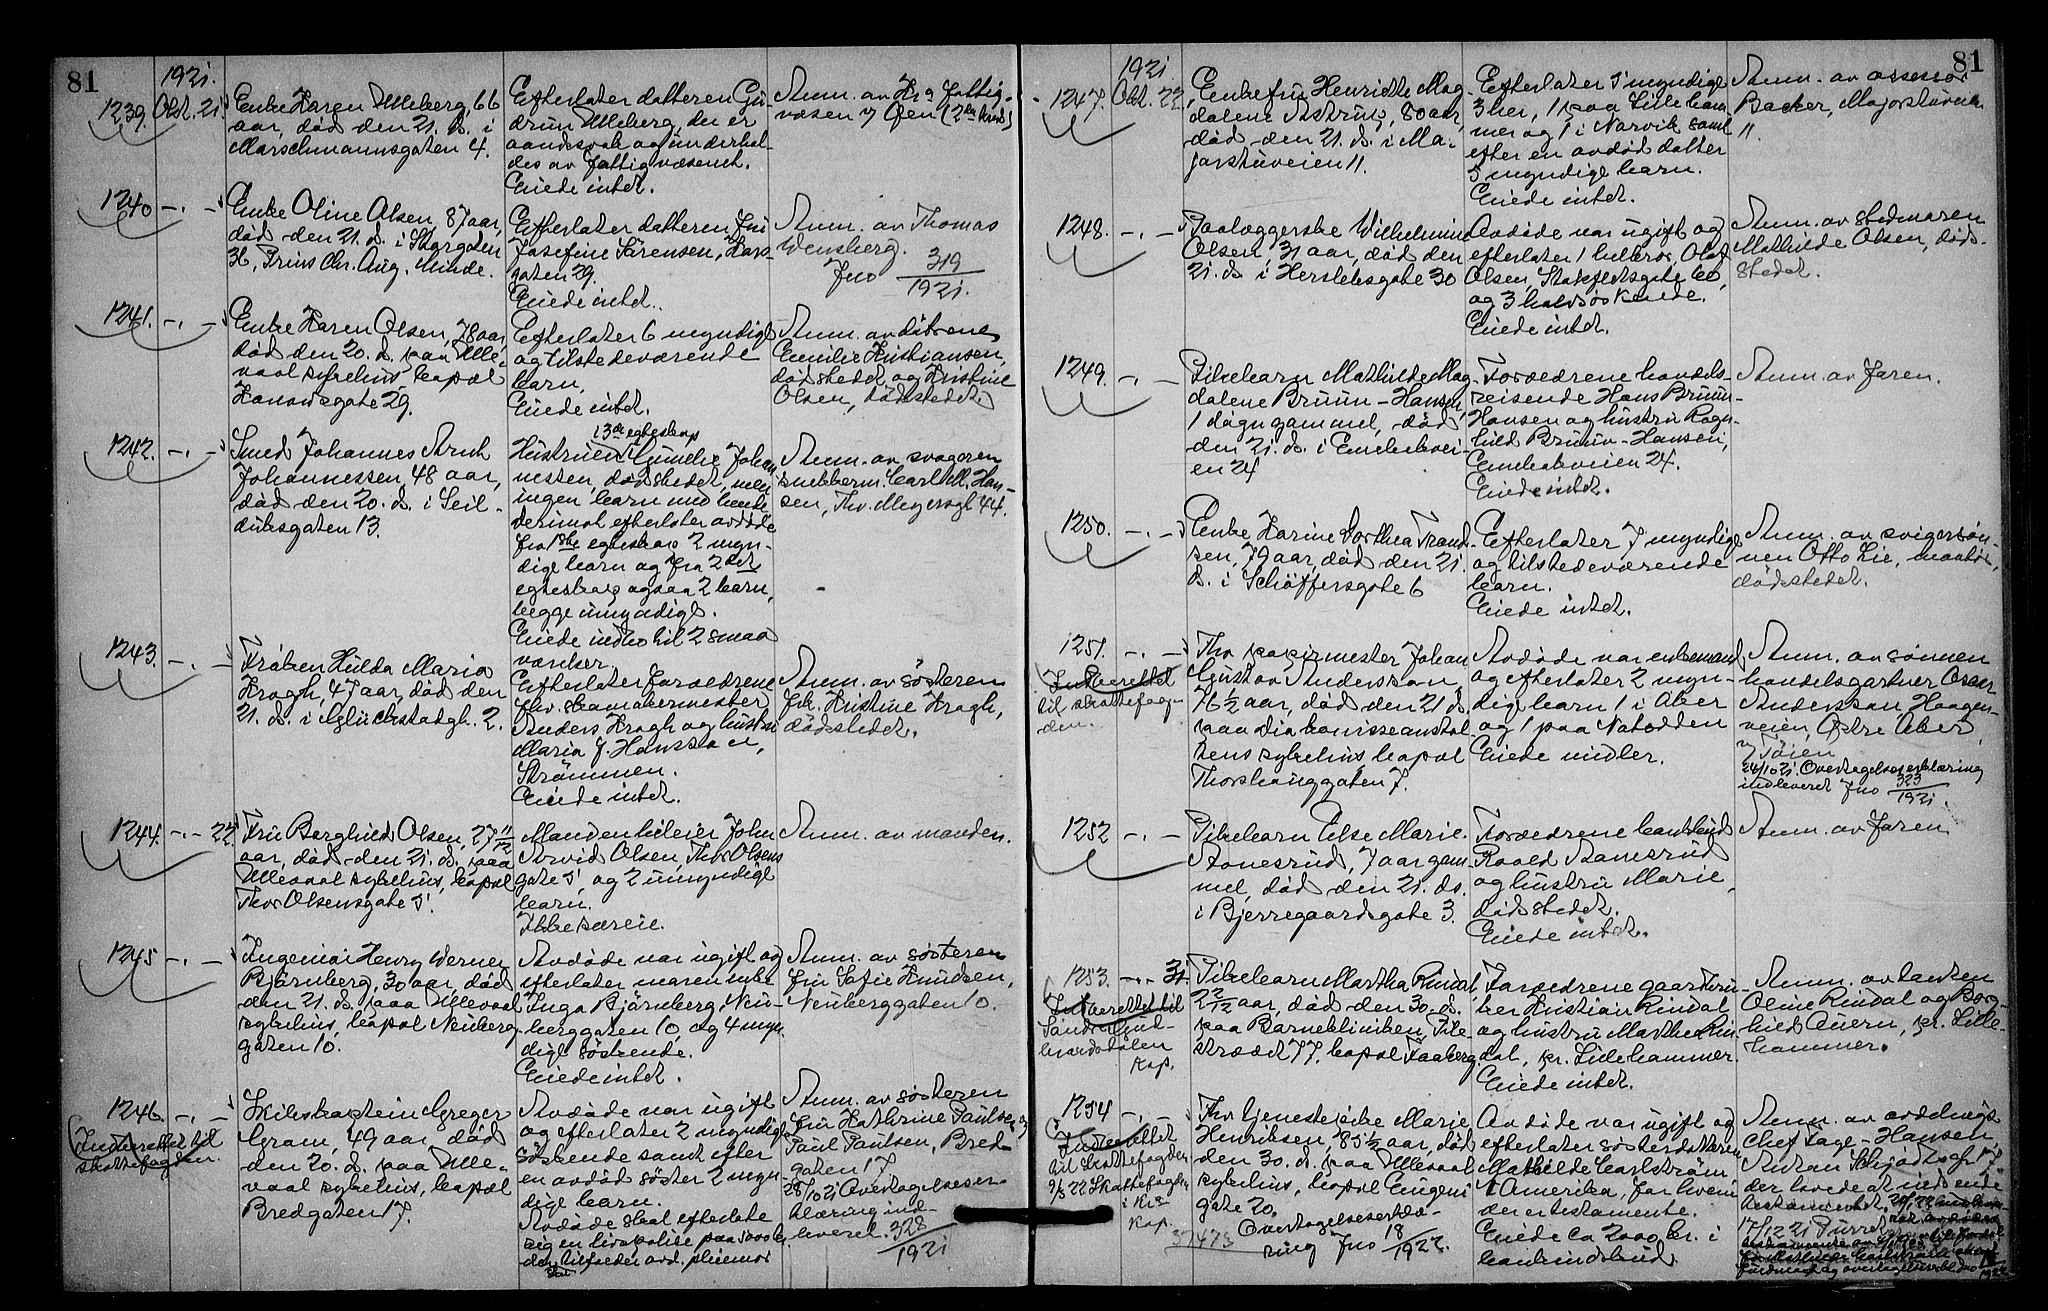 81
1921.
1239. Okt. 21.
Enke Karen Ulleberg, 66
aar, død den 21. ds. i
Marschmannsgaten 4.
Efterlater datteren Gu-
drun Ulleberg, der er
aandssvak og underhol-
des av Fattigvæsenet.
Eiede intet.
Anm. av Kra Fattig-
væsen
1240 -.-
Enke Oline Olsen, 87 aar,
død den 21. ds. i Storgaten
36, Prins Chr. Aug. Minde.
Efterlater datteren Fru
Josefine Sørensen,
gaten 29.
Eiede intet.
Anm. av Thomas
Wensberg.
Jno 319
1921.
1241. -.-
Enke Karen Olsen, 78 aar
død den 20. ds. paa Ulle-
vaal sykehus, bopæl
gate 29.
Efterlater 6 myndige
og tilstedeværende
barn.
Eiede intet.
Anm. av døtrene
Emilie Kristiansen,
dødsstedet og Kristine
Olsen, dødsstedet.
1242. -.-
Smed Johannes
Johannessen, 48 aar,
død den 20. ds. i Seil-
duksgaten 13.
i 3die egteskap
Hustruen Gunelie Johan-
nesen, dødsstedet, men
ingen barn med hende
derimot efterlater avdøde
fra 1ste egteskap 2 myn-
dige barn og fra 2det
egteskap ogsaa 2 barn,
begge umyndige.
Eiede indbo til 2 smaa
værelser.
Anm. av svogeren
snekkerm. Carl M. Han-
sen, Thv. Meyersgt 44.
1243. -.-
Frøken Hulda Marie
Kragh, 47 aar, død den
21. ds. i Glückstadgt. 2.
Efterlater forældrene
fhv. skomakermester
Anders Kragh og hustru
Maria J. Hanssen,
Strømmen.
Eiede intet.
Anm. av søsteren
frk. Kristine Kragh,
dødsstedet.
1244. -.- 22.
Fru Borghild Olsen, 27 11/12
aar, død den 21. ds. paa
Ullevaal sykehus, bopæl
Thor Olsensgate 5.
Manden bileier John
Arvid Olsen, Thor Olsens
gate 5, og 2 umyndige
barn.
Ikke særeie.
Anm. av manden.
1245 -.-
Ingeniør Henry Werner
Bjørnberg, 30 aar, død
den 21. ds. paa Ullevaal
sykehus, bopæl Neuberg-
gaten 10.
Avdøde var ugift og
efterlater moren enke
Inga Bjørnberg, Neu-
berggaten 10, og 4 myn-
dige søskende.
Eiede intet.
Anm. av søsteren
fru Sofie Knudsen,
Neuberggaten 10.
1246. -.-
Indberettet til
skattefogden.
Skibskaptein Greger
Gram, 49 aar, død
den 20. ds. paa Ulle-
vaal sykehus, bopæl
Bredgaten 17.
Avdøde var ugift
og efterlater 2 myndige
søskende samt efter
en avdød søster 2 myn-
dige barn.
Avdøde skal efterlate
sig en livspolise paa 5000 kr.
der skal tilfalde avd. pleiemor
Anm. av søsteren
fru Kathrine Paulsen
Paul Paulsen, Bred-
gaten 17
28/10 21 Overtagelseser-
klæring ind-
leveret. 328
1921
81
1921
1247. Okt. 22.
Enkefru Henriette Mag-
dalene Astrup, 80 aar,
død den 21. ds. i Ma-
jorstuveien 11.
Efterlater 5 myndige
3 her, 1 paa Lilleham-
mer og 1 i Narvik samt
efter en avdød datter
5 myndige barn.
Eiede intet.
Anm. av assessor
Backer, Majorstuvn.
11.
1248. -.-
Paaloggerske Wilhelmine
Olsen, 31 aar, død den
21. ds i Herslebsgate 30
Avdøde var ugift og
efterlater 1 helbror, Olaf
Olsen, Stakfeldtsgate 60,
og 3 halvsøskende.
Eiede intet.
Anm. av stedmoren
Mathilde Olsen, døds-
stedet.
1249. -.-
Pikebarn Mathilde Mag-
dalene Bruun-Hansen,
1 døgn gammel, død
den 21. ds. i Enebakvei-
en 24
Forældrene handels-
reisende Hans Bruun-
Hansen og hustru Ragn-
hild Bruun-Hansen,
Enebakveien 24.
Eiede intet.
Anm. av faren.
1250. -.-
Enke Karine Dorthea Trand-
sen, 79 aar, død den 21.
ds. i Schøffersgate 6
Efterlater 7 myndige
og tilstedeværende
barn.
Eiede intet.
Anm. av svigersøn-
nen Otto Lie, montør,
dødsstedet.
1251. -.-
Indberettet
til skattefog-
den.
Fhv. papirmester Johan
Gustav Andersson,
76 1/2 aar, død den 21. ds.
paa diakonisseanstal-
tens sykehus, bopæl
Thorshauggaten 7.
Avdøde var enkemand
og efterlater 2 myn-
dige barn 1 i Aker
og 1 paa Notodden
Eiede midler.
Anm. av sønnen
handelsgartner Oscar
Andersson, Haagen-
veien, Østre Aker
Tøien
26/10 21. Overtagelseserklæring
indleveret Jno 323
1921.
1252 -.-
Pikebarn Else Marie
Aanesrud, 7 aar gam-
mel, død den 21. ds.
i Bjerregaardsgate 3.
Forældrene kontorbud
Roald Aanesrud
og hustru Marie,
dødsstedet.
Eiede intet.
Anm. av faren
1253. -.- 31.
Indberettet til
Søndre Gud-
brandsdalen
Kap.
Pikebarn Martha Rindal,
2 2/12 aar, død den 30. ds.
paa Barneklinikken, Pile-
strædet 77, bopæl Faaberg.
Forældrene gaardbru-
ker Kristian Rindal
og hustru Marthe Rin-
dal, pr. Lillehammer.
Eiede intet.
Anm. av tanten
Oline Rindal og Borg-
hild Auern, pr. Lille-
hammer.
1254 -.-
Indberettet
til Skattefogden
9/3 22 Skattefogden
i Kra
Kap.
37473
Fhv. tjenestepike Marie
Henriksen, 85 1/2 aar, død
den 30. ds. paa Ullevaal
sykehus, bopæl Eugeni
gate 20.
Overtagelseserklæ-
ring Jno 18
1922.
Avdøde var ugift og
efterlater søsterdatteren
Mathilde Carlstrøm
i Amerika, for hvem
der er testamente.
Eiede ca 2000 kr. i
bankindskud.
Anm. av avdelings-
chef Lage-Hansen,
Anton Schjødtsgt
der lovede at indsende
testamentet.
17/12 21